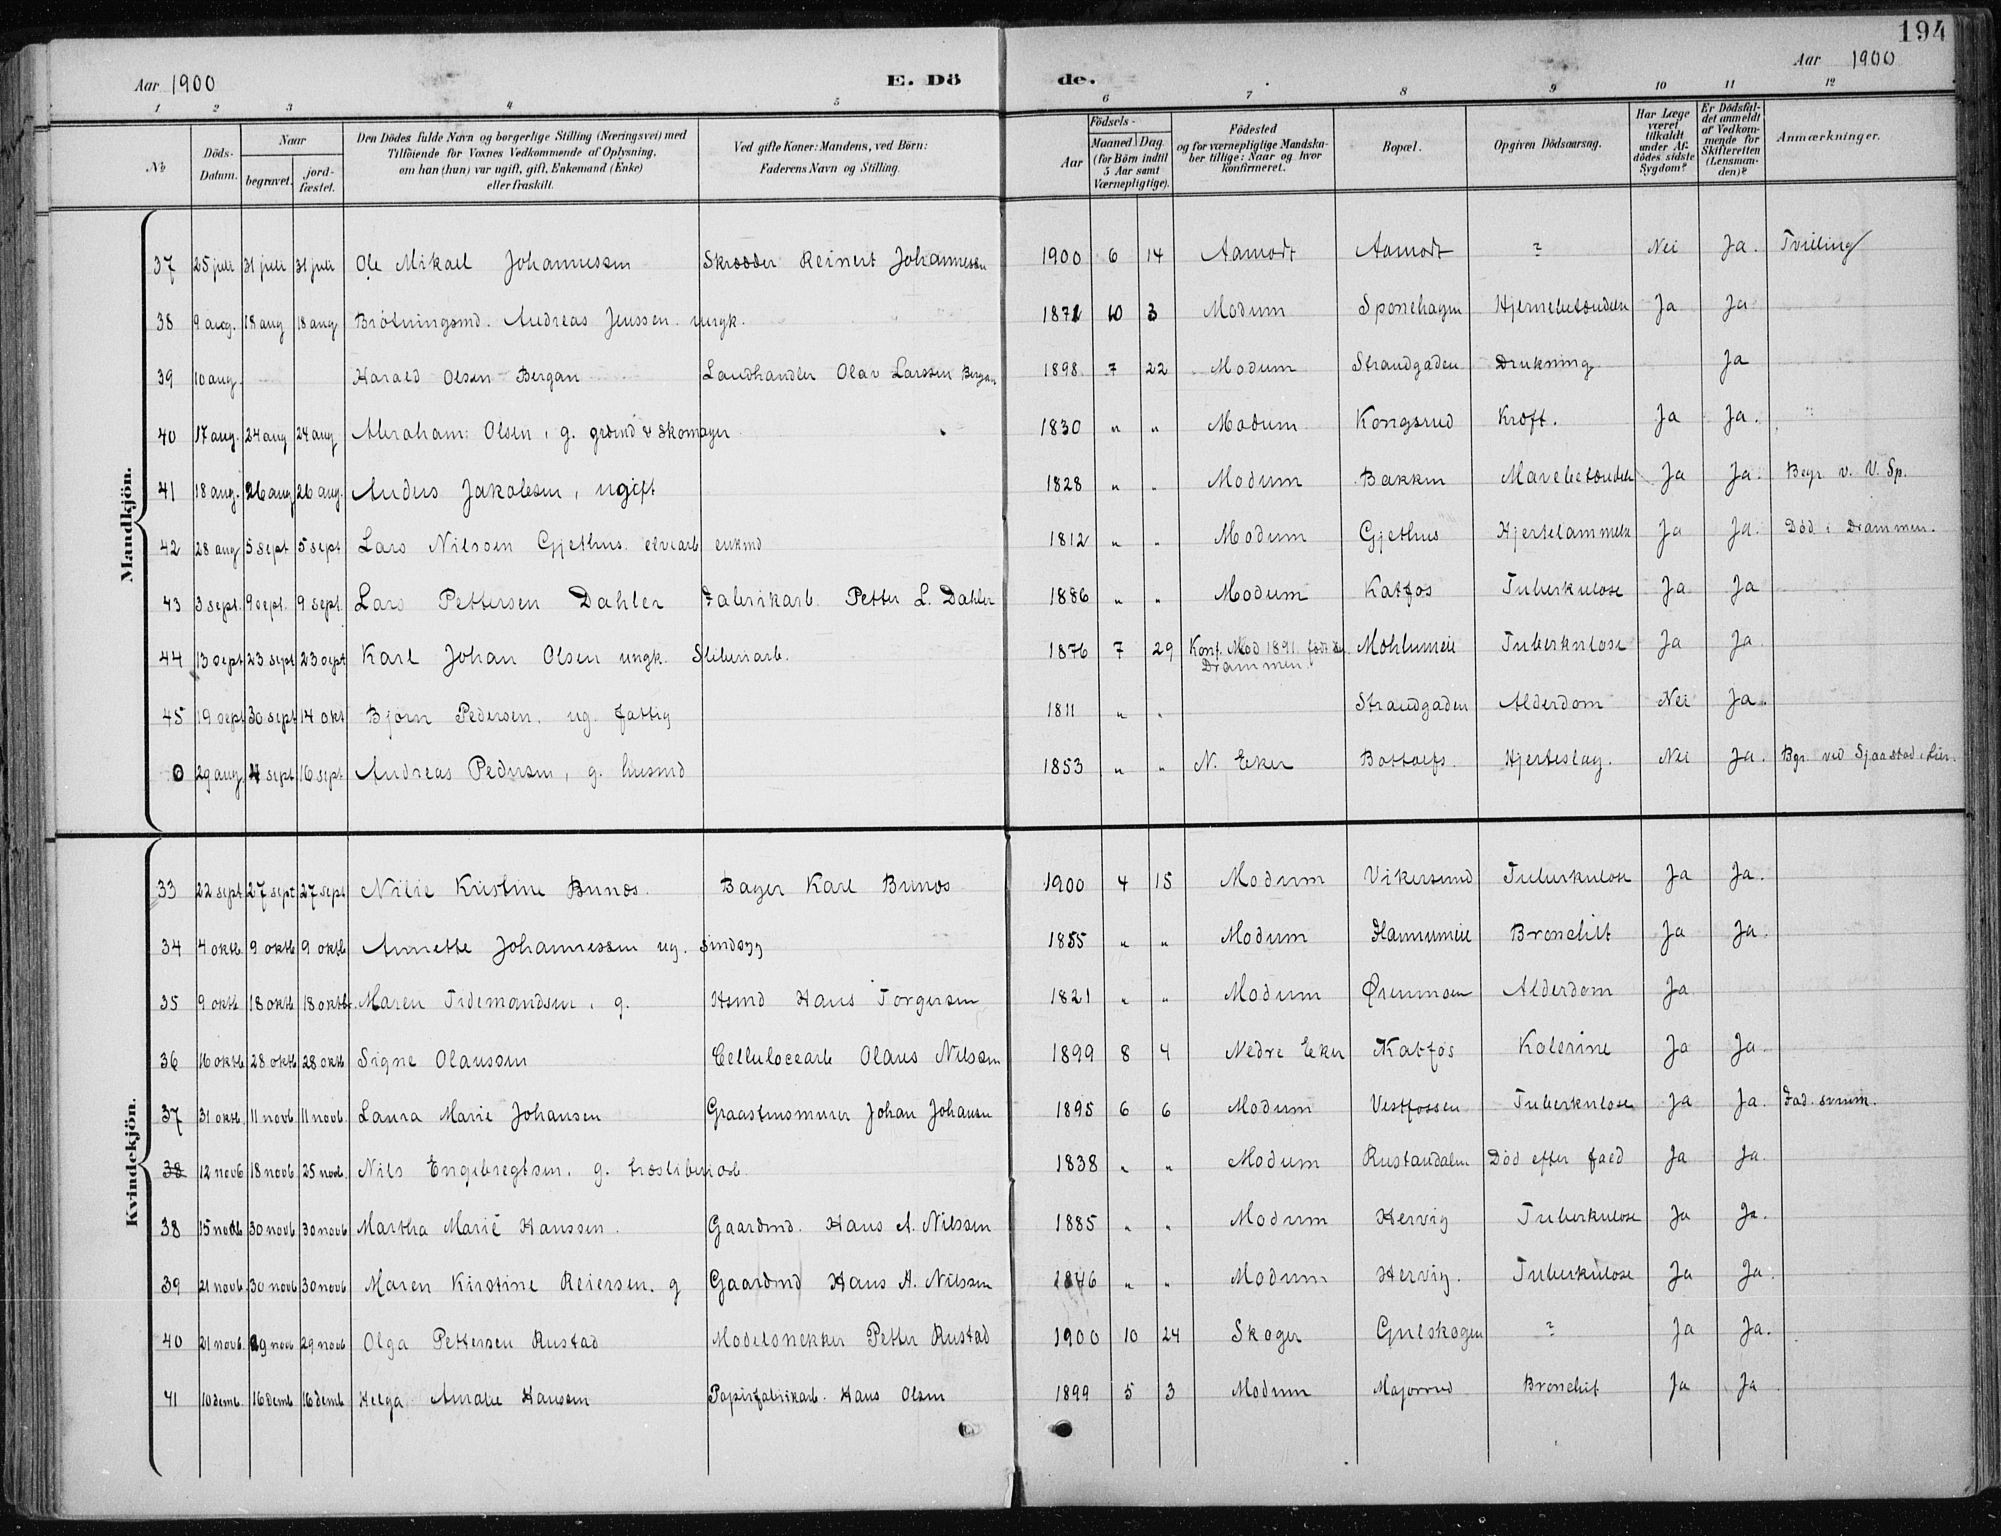 194
Aar 1900 E. Dö de. Aar 1900
1 2 3 4 5 6 7 8 9 10 11 12
No Döds-Datum. Naar begravet. jordfæstet. Den Dödes fulde Navn og borgerlige Stilling (Næringsvei) med Tilföiende for Voxnes Vedkommende af Oplysning, om han (hun) var ugift, gift, Enkemand (Enke) eller fraskilt. Ved gifte Koner: Mandens, ved Börn: Faderens Navn og Stilling. Födsels- Aar Maaned Dag. (for Börn indtil 5 Aar samt Værnepligtige). Födested og for værnepligtige Mandskaber tillige: Naar og hvor konfirmeret. Bopæl. Opgiven Dödsaarsag. Har Læge været tilkaldt under Afdödes sidste Sygdom? Er Dödsfaldet anmeldt af Vedkommende for Skifteretten (Lensmanden)? Anmærkninger.
Mandkjön.
37 25 juli 31 juli 31 juli Ole Mikael Johannessen Skrædder Reinert Johannessen 1900 6 14 Aamodt Aamodt ? Nei Ja. Tvilling
38 9 aug. 18 aug 18 aug Brötningsmd. Andreas Jenssen ungk. 1871 10 3 Modum Sponehagen Hjernebetændelse Ja Ja
39 10 aug. Harald Olsen Bergan Landhandler Olav Larssen Bergan 1898 7 22 Modum Strandgaden Drukning Ja
40 17 aug. 24 aug 24 aug Abraham Olsen, g. grdmd & skomager 1830 " " Modum Kongsrud Kræft. Ja Ja.
41 18 aug. 26 aug 26 aug. Anders Jakobsen, ugift 1828 " " Modum Bakken Mavebetændelse Ja Ja. Begr. v. V. Sp.
42 28 aug 5 sept 5 sept Lars Nilssen Gjethus elvearb enkmd 1812 " " Modum Gjethus Hjertelammelse Ja Ja. Död i Drammen.
43 3 sept. 9 sept. 9 sept. Lars Pettersen Dahler Fabrikarb. Petter L. Dahler 1886 " " Modum Katfos Tuberkulose Ja Ja
44 13 sept 23 sept 23 sept Karl Johan Olsen ungk. Sliberiarb. 1876 7 29 Konf. Mod 1891. född i Drammen. Möhlumeie Tuberkulose Ja Ja.
45 19 sept 30 sept 14 okt Björn Pedersen, ug. fattig 1811 " " Strandgaden Alderdom Nei Ja.
0 29 aug. 4 sept 16 sept. Andreas Pedersen, g. husmd 1853 " " N. Eker Bottolfs. Hjerteslag. Nei Ja. Bgr. ved Sjaastad i Lier.
Kvindekjön.
33 22 sept 27 sept 27 sept Nilie Kristine Bunæs Bager Karl Bunæs 1900 4 15 Modum Vikersund Tuberkulose Ja Ja.
34 4 oktb 9 oktb 9 oktb Annette Johannessen ug. sindssyg 1855 " " Modum Bronchitt Ja Ja.
35 9 oktb 18 oktb 18 oktb. Maren Tidemandsen, g. Hsmd Hans Torgersen 1821 " " Modum Alderdom Ja
36 16 oktb 28 oktb 28 oktb Signe Olaussen Cellulocearb Olaus Nilssen 1899 8 4 Nedre Eker Katfos Kolerine Ja Ja.
37 31 oktb. 11 novb 11 novb Laura Marie Johansen Graastensmurer Johan Johansen 1895 6 6 Modum Vestfossen Tuberkulose Ja Ja. Fad. svensk.
38 12 novb 18 novb 25 novb. Nils Engebregtsen, g. træsliberiarb. 1838 " " Modum Rustandalen Död efter fald Ja Ja.
38 15 novb. 30 novb 30 novb Martha Marie Hanssen. Gaardmd. Hans A. Nilssen 1885 " " Modum Hervig Tuberkulose Ja Ja.
39 21 novb. 30 novb 30 novb Maren Kirstine Reiersen. g Gaardmd Hans A. Nilssen 1846 " " Modum Hervig. Tuberkulose Ja Ja.
40 21 novb. 29 novb 29 novb Olga Pettersen Rustad Modelsnekker Petter Rustad 1900 10 24 Skoger Gulskogen ? Ja Ja.
41 10 demb. 16 demb 16 demb Helga Amalie Hanssen Papirfabrikarb. Hans Olsen 1899 5 3 Modum Majorrud Bronchit Ja Ja